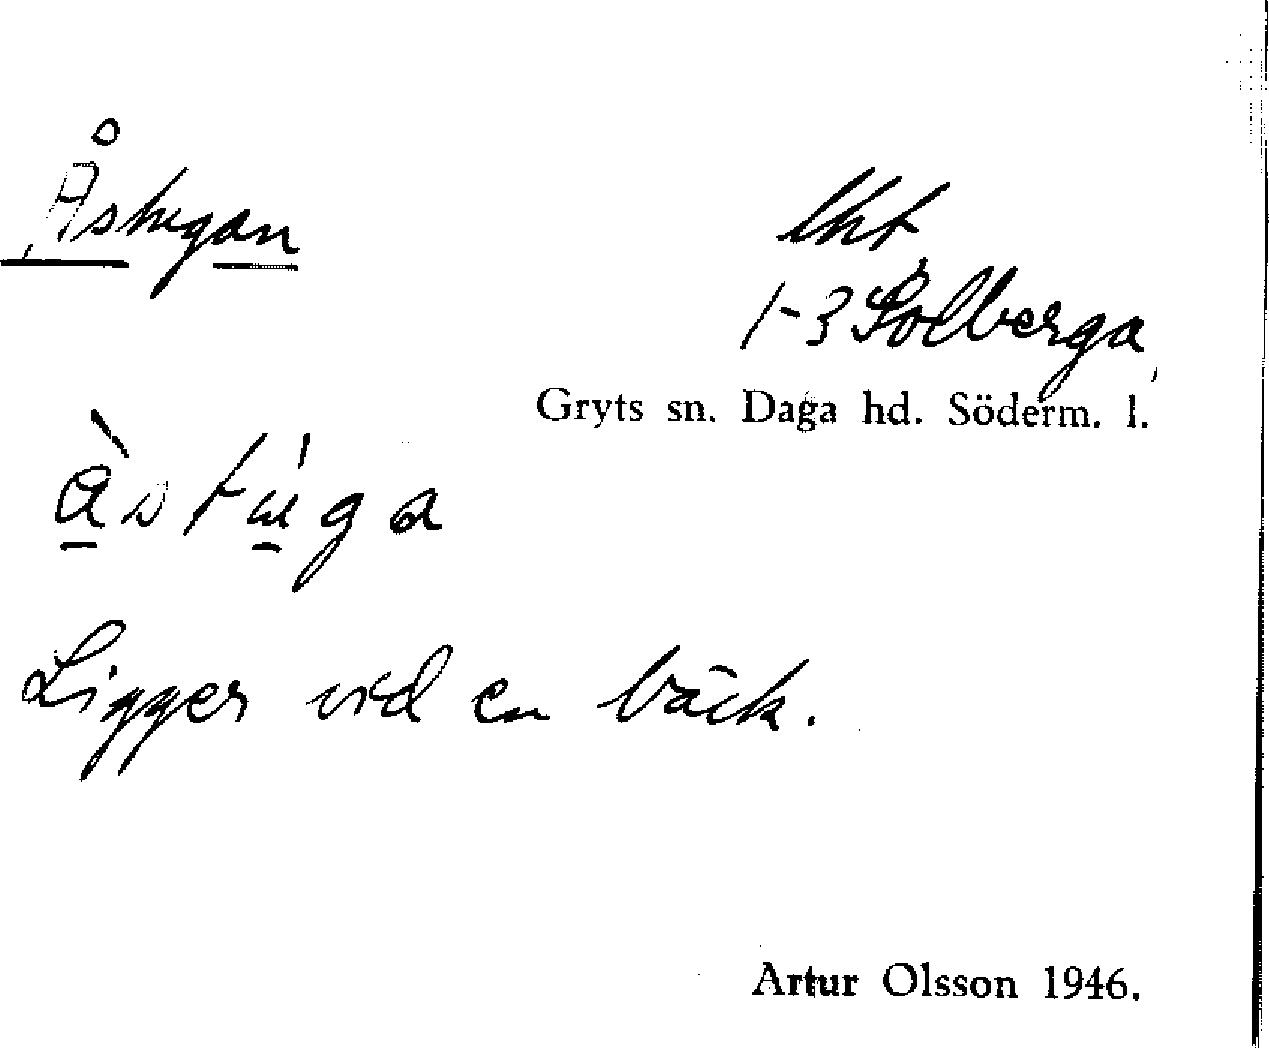 Åstugan
lht
1-3 Solberga
Gryts sn. Daga hd. Söderm. l.
Ligger vid en bäck.
Artur Olsson 1946.